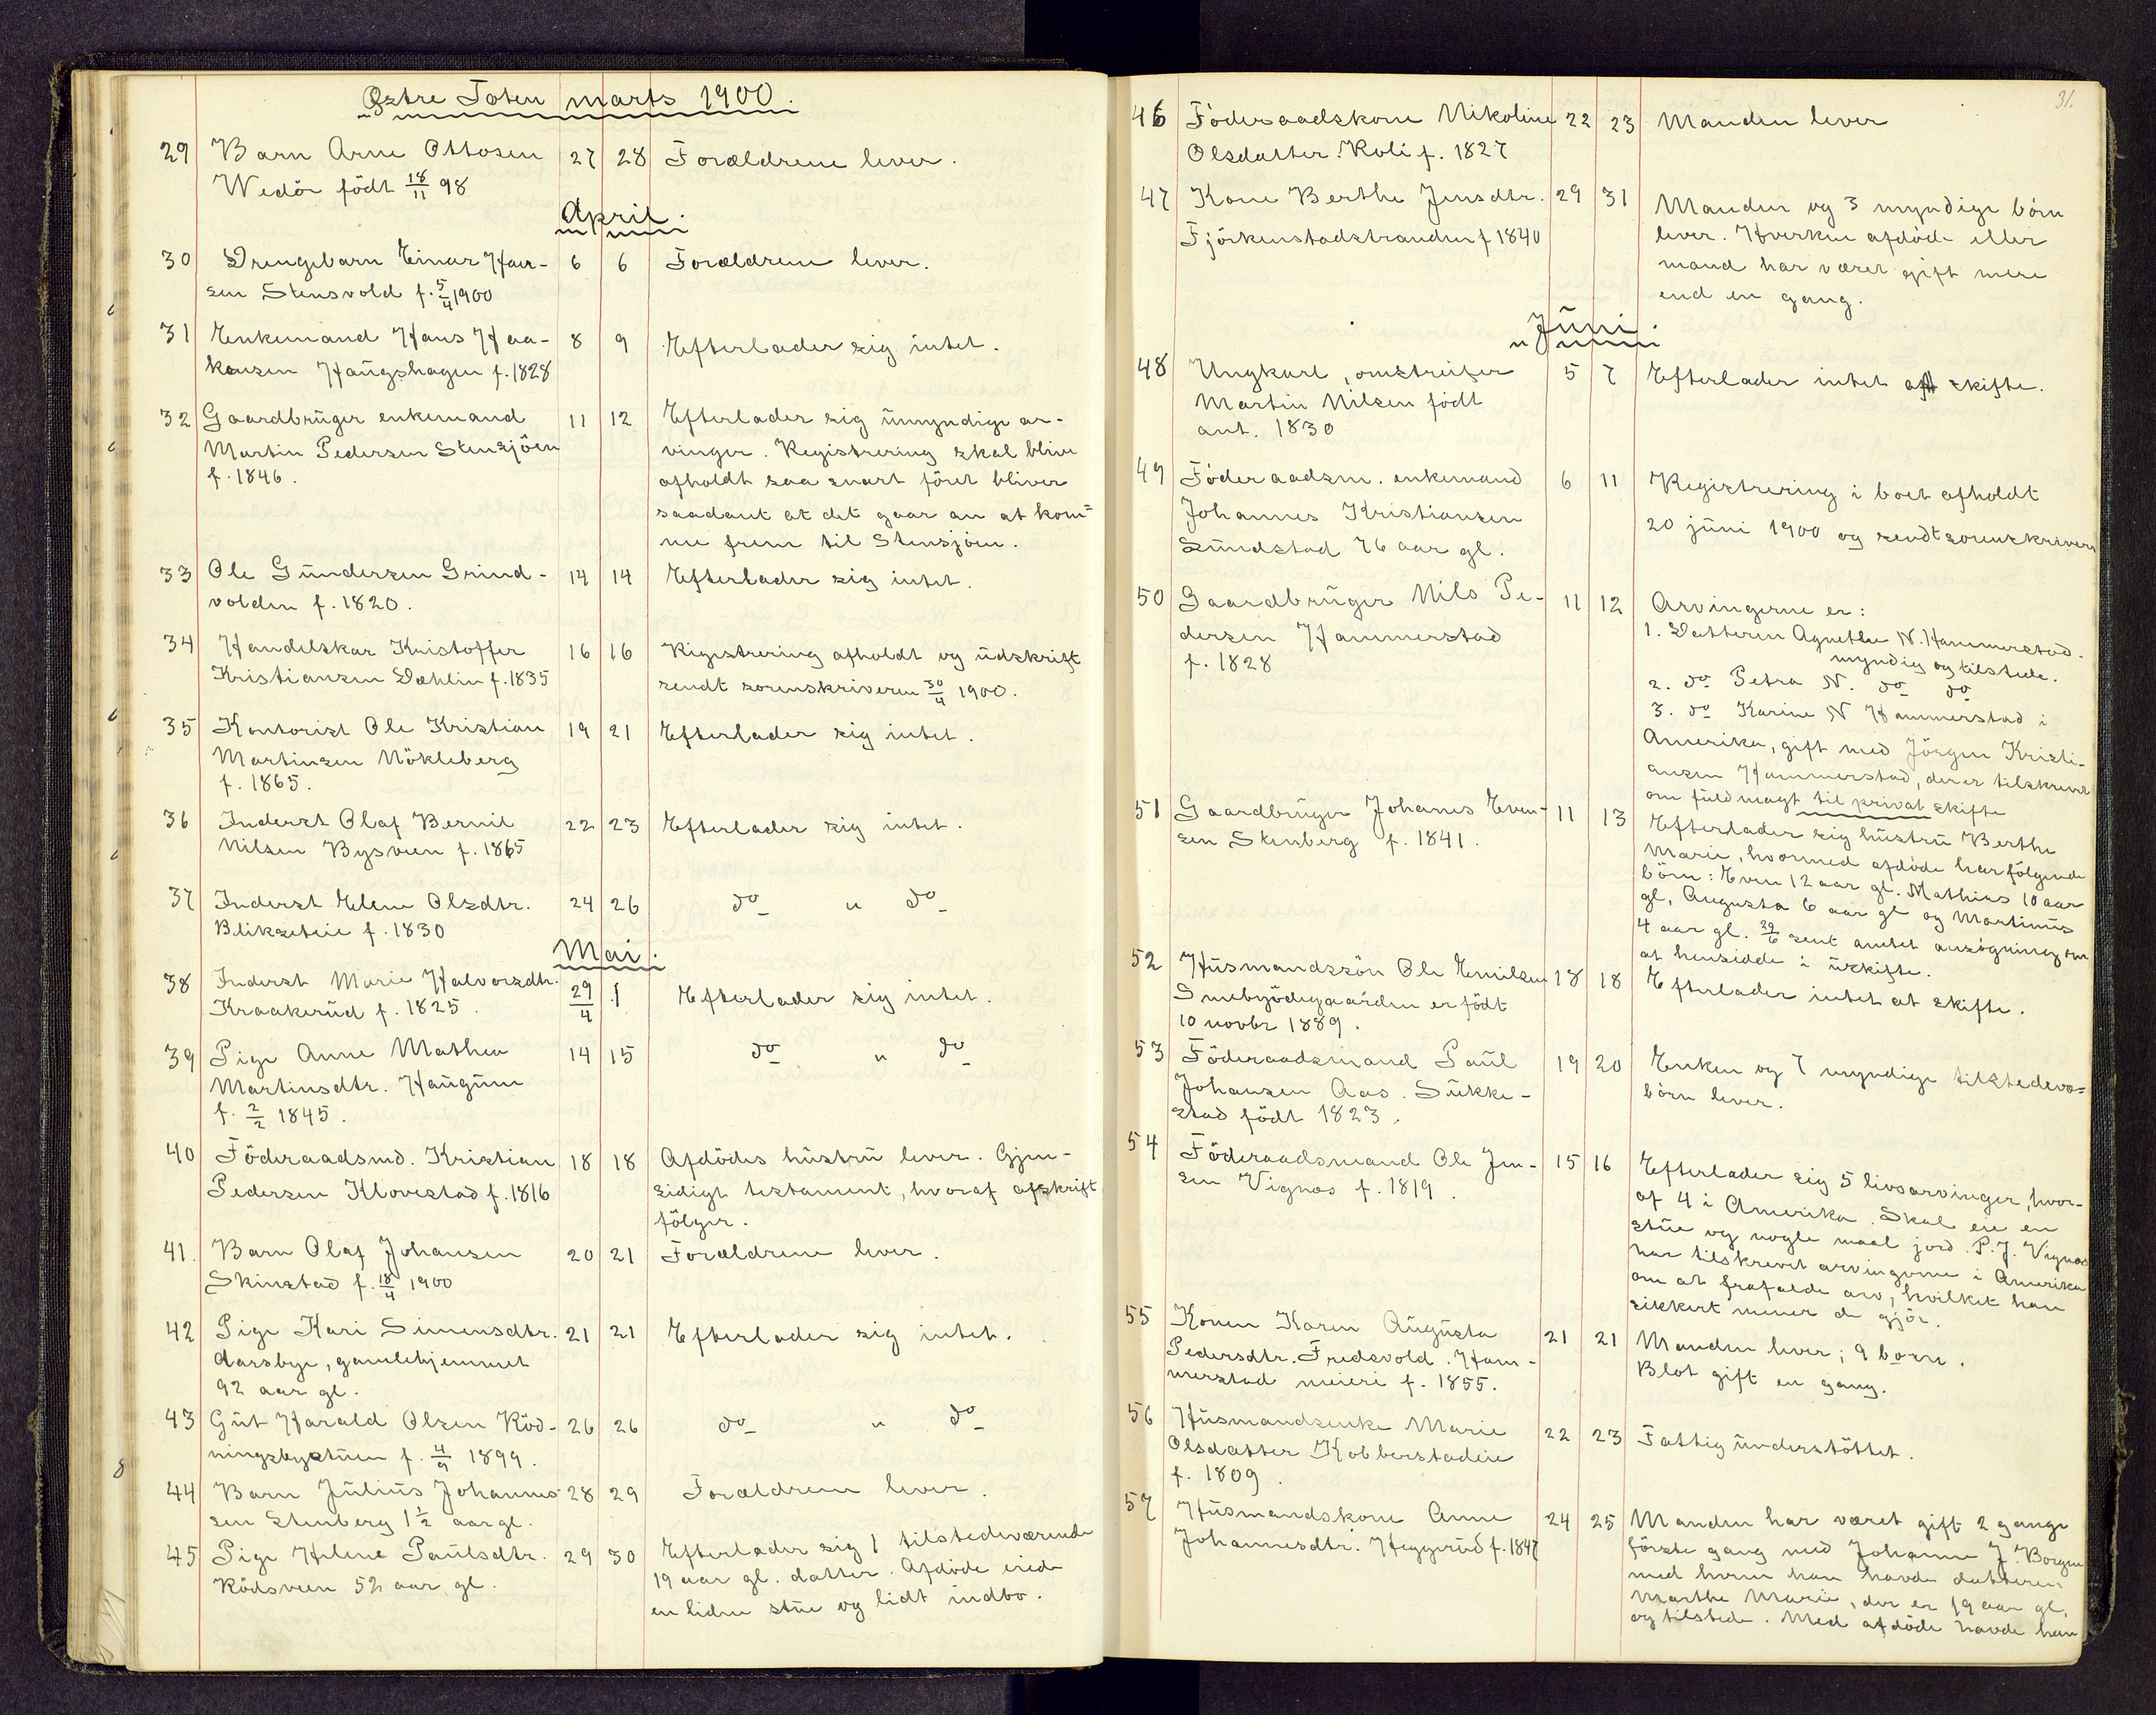 Østre Toten marts 1900.
29 Barn Arne Ottosen 27 28 Forældrene lever.
Wedör födt 18/11 98
April.
30 Drengebarn Einar Han- 6 6 Forældrene lever.
sen Stensvold f. 5/4 1900
31 Enkemand Hans Haa- 8 9 Efterlader sig intet.
kensen Haugshagen f. 1828
32 Gaardbruger enkemand 11 12 Efterlader sig umyndige ar-
Martin Pedersen Stensjöen vinger. Registrering skal blive
f. 1846. afholdt saa snart föret bliver
saadant at det gaar an at kom-
me frem til Stensjöen.
33 Ole Gundersen Grind- 14 14 Efterlader sig intet.
volden f. 1820.
34 Handelskar Kristoffer 16 16 Registrering afholdt og udskrift
Kristiansen Dæhlin f. 1835 sendt sorenskriveren 30/4 1900.
35 Kontorist Ole Kristian 19 21 Efterlader sig intet.
Martinsen Nökleberg
f. 1865.
36 Inderst Olaf Bernil 22 23 Efterlader sig intet.
Nilsen Bysveen f. 1865
37 Inderst Elene Olsdtr. 24 26 do " do
Blikseteie f. 1830
Mai.
38 Inderst Marie Halvorsdtr. 29/4 1 Efterlader sig intet.
Kraakerud f. 1825.
39 Pige Anne Mathea 14 15 do " do
Martinsdtr. Haugum
f. 2/2 1845.
40 Föderaadsmd. Kristian 18 18 Afdödes hustru lever. Gjen-
Pedersen Klovestad f. 1816 sidigt testament, hvoraf afskrift
fölger.
41. Barn Olaf Johansen 20 21 Forældrene lever.
Skinstad f. 18/4 1900
42 Pige Kari Simensdtr. 21 21 Efterlader sig intet.
Aarsbye, gamlehjemmet
92 aar gl.
43 Gut Harald Olsen Röd- 26 26 do " do
ningsbystuen f. 4/9 1899.
44 Barn Julius Johannes- 28 29 Forældrene lever.
sen Stenberg 1 1/2 aar gl.
45 Pige Helene Paulsdtr. 29 30 Efterlader sig 1 tilstedeværende
Rödsveen 52 aar gl. 19 aar gl. datter. Afdöde eiede
en liden stue og lidt indbo.
31.
46 Föderaadskone Nikoline 22 23 Manden lever
Olsdatter Koli f. 1827
47 Kone Berthe Jensdtr. 29 31 Manden og 3 myndige börn
Fjörkenstadstranden f 1840 lever. Hverken afdöde eller
mand har været gift mere
end en gang.
Juni.
48 Ungkarl, omstreifer 5 7 Efterlader intet at skifte.
Martin Nilsen födt
ant. 1830
49 Föderaadsm. enkemand 6 11 Registrering i boet afholdt
Johannes Kristiansen 20 juni 1900 og sendt sorenskriveren
Sundstad 76 aar gl.
50 Gaardbruger Nils Pe- 11 12 Arvingerne er:
dersen Hammerstad 1. Datteren Agnethe N. Hammerstad.
f. 1828 myndig og tilstede.
2. do Petra N. do do
3. do Karine N Hammerstad i
Amerika, gift med Jörgen Kristi-
ansen Hammerstad, der er tilskrevet
om fuldmagt til privat skifte
51 Gaardbruger Johanes Even- 11 13 Efterlader sig hustru Berthe
sen Stenberg f. 1841. Marie, hvormed afdöde har fölgende
börn: Even 12 aar gl. Mathias 10 aar
gl, Augusta 6 aar gl og Martinus
4 aar gl. 29/6 sent amtet ansögning om
at hensidde i uskifte.
52 Husmandssön Ole Emilsen 18 18 Efterlader intet at skifte.
Smebyödegaarden er födt
10 novbr 1889.
53 Föderaadsmand Paul 19 20 Enken og 7 myndige tilstedevæ-
Johansen Aas. Sukke- börn lever.
stad födt 1823.
54 Föderaadsmand Ole Jen- 15 16 Efterlader sig 5 livsarvinger, hvor-
sen Vignas f. 1819. af 4 i Amerika. Skal eie en
stue og nogle maal jord. P. J. Vignas
har tilskrevet arvingerne i Amerika
om at frafalde arv, hvilket han
sikkert mener de gjör.
55 Konen Karen Augusta 21 21 Manden lever; 9 börn.
Pedersdtr. Fredsvold. Ham- Blot gift en gang.
merstad meieri f. 1855.
56 Husmandsenke Marie 22 23 Fattig understöttet.
Olsdatter Kobberstadeie
f. 1809.
57 Husmandskone Anne 24 25 Manden har været gift 2 gange
Johannesdtr. Heggerud f. 1847 förste gang med Johanne J. Borgen
med hvem han havde datteren
Marthe Marie, der er 19 aar gl,
og tilstede. Med afdöde havde han